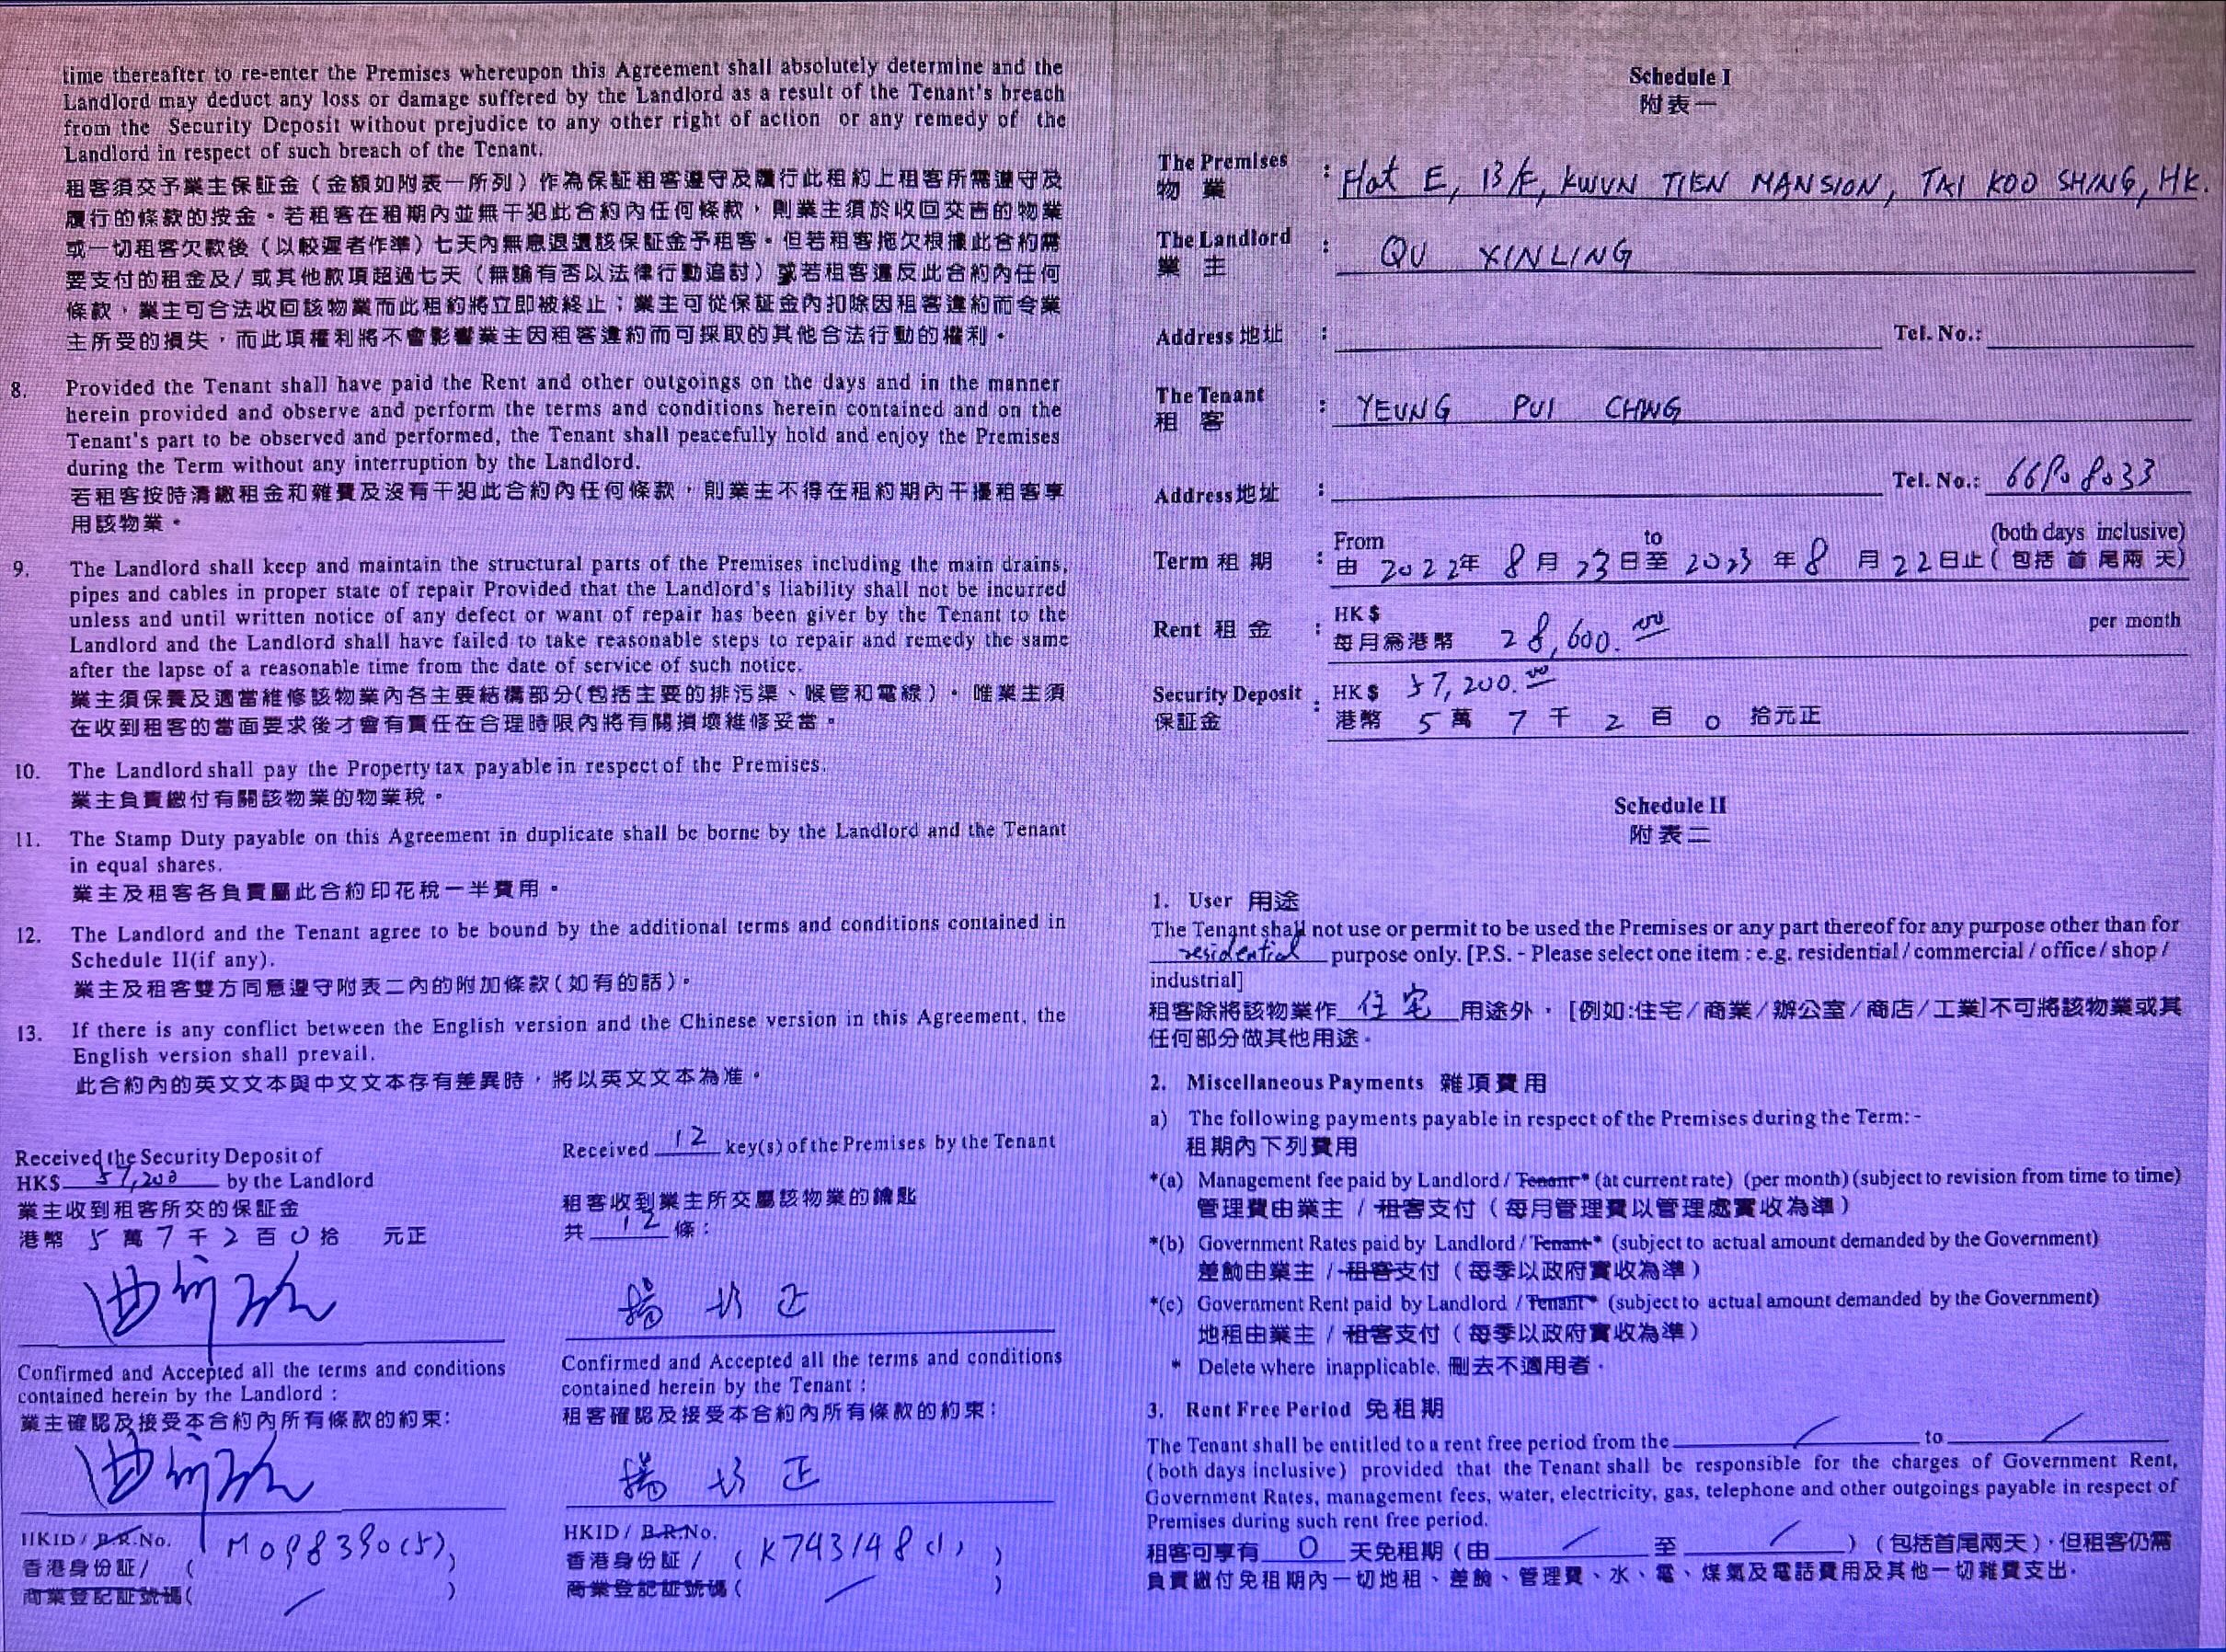 time thereafter to re-enter the Premises whereupon this Agreement shall absolutely determine and the
Landlord may deduct any loss or damage suffered by the Landlord as a result of the Tenant's breach
from the Security Deposit without prejudice to any other right of action or any remedy of the
Landlord in respect of such breach of the Tenant.
租客須交予業主保証金（金額如附表一所列）作為保証租客遵守及履行此租約上租客所需遵守及
履行的條款的按金。若租客在租期內並無干犯此合約內任何條款，則業主須於收回交吉的物業
或一切租客欠款後（以較遲者作準）七天內無息退還該保証金予租客。但若租客拖欠根據此合約需
要支付的租金及/或其他款項超過七天（無論有否以法律行動追討）或若租客違反此合約內任何
條款，業主可合法收回該物業而此租約將立即被終止；業主可從保証金內扣除因租客違約而令業
主所受的損失，而此項權利將不會影響業主因租客違約而可採取的其他合法行動的權利。
8. Provided the Tenant shall have paid the Rent and other outgoings on the days and in the manner
herein provided and observe and perform the terms and conditions herein contained and on the
Tenant's part to be observed and performed, the Tenant shall peacefully hold and enjoy the Premises
during the Term without any interruption by the Landlord.
若租客按時清繳租金和雜費及沒有干犯此合約內任何條款，則業主不得在租約期內干擾租客享
用該物業。
9. The Landlord shall keep and maintain the structural parts of the Premises including the main drains,
pipes and cables in proper state of repair Provided that the Landlord's liability shall not be incurred
unless and until written notice of any defect or want of repair has been giver by the Tenant to the
Landlord and the Landlord shall have failed to take reasonable steps to repair and remedy the same
after the lapse of a reasonable time from the date of service of such notice.
業主須保養及適當維修該物業內各主要結構部分(包括主要的排污渠、喉管和電線)。唯業主須
在收到租客的當面要求後才會有責任在合理時限內將有關損壞維修妥當。
10. The Landlord shall pay the Property tax payable in respect of the Premises.
業主負責繳付有關該物業的物業稅。
11. The Stamp Duty payable on this Agreement in duplicate shall be borne by the Landlord and the Tenant
in equal shares.
業主及租客各負責屬此合約印花稅一半費用。
12. The Landlord and the Tenant agree to be bound by the additional terms and conditions contained in
Schedule II(if any).
業主及租客雙方同意遵守附表二內的附加條款(如有的話)。
13. If there is any conflict between the English version and the Chinese version in this Agreement, the
English version shall prevail.
此合約內的英文文本與中文文本存有差異時，將以英文文本為准。
Received the Security Deposit of
HK$ 57,200 by the Landlord
業主收到租客所交的保証金
港幣 5 萬 7 千 2 百 0 拾 元正
Confirmed and Accepted all the terms and conditions
contained herein by the Landlord :
業主確認及接受本合約內所有條款的約束:
HKID / B.R. No.
香港身份証/ ( M098390(5) )
商業登記証號碼( )
Received 12 key(s) of the Premises by the Tenant
租客收到業主所交屬該物業的鑰匙
共 12 條：
楊 正
Confirmed and Accepted all the terms and conditions
contained herein by the Tenant :
租客確認及接受本合約內所有條款的約束：
楊 正
HKID / B.R. No.
香港身份証 / ( K743148(1) )
商業登記証號碼( )
Schedule I
附表一
The Premises : Flat E, 13/F, KWUN TIEN MANSION, TAI KOO SHING, HK.
物 業
The Landlord : QU XINLING
業 主
Address 地址 : Tel. No.:
The Tenant : YEUNG PUI CHING
租 客
Address 地址 : Tel. No.:
From to (both days inclusive)
Term 租 期 : 由 2022年 8月 23日至 2023 年 8 月 22日止 ( 包括 首 尾兩 天)
HK $
Rent 租 金 : 每月為港幣 28,600.00 per month
Security Deposit : HK $ 57,200.00
保証金 港幣 5 萬 7 千 2 百 0 拾元正
Schedule II
附表二
1. User 用途
The Tenant shall not use or permit to be used the Premises or any part thereof for any purpose other than for
residential purpose only. [P.S. - Please select one item : e.g. residential / commercial / office / shop /
industrial]
租客除將該物業作 住宅 用途外，[例如:住宅/商業/辦公室/商店/工業]不可將該物業或其
任何部分做其他用途。
2. Miscellaneous Payments 雜項費用
a) The following payments payable in respect of the Premises during the Term: -
租期內下列費用
*(a) Management fee paid by Landlord / Tenant* (at current rate) (per month) (subject to revision from time to time)
管理費由業主 / 租客支付（每月管理費以管理處實收為準）
*(b) Government Rates paid by Landlord / Tenant* (subject to actual amount demanded by the Government)
差餉由業主 / 租客支付（每季以政府實收為準）
*(c) Government Rent paid by Landlord / Tenant* (subject to actual amount demanded by the Government)
地租由業主 / 租客支付（每季以政府實收為準）
* Delete where inapplicable. 刪去不適用者。
3. Rent Free Period 免租期
The Tenant shall be entitled to a rent free period from the / to /
(both days inclusive) provided that the Tenant shall be responsible for the charges of Government Rent,
Government Rates, management fees, water, electricity, gas, telephone and other outgoings payable in respect of
Premises during such rent free period.
租客可享有 0 天免租期（由 / 至 / ）（包括首尾兩天）。但租客仍需
負責繳付免租期內一切地租、差餉、管理費、水、電、煤氣及電話費用及其他一切雜費支出。